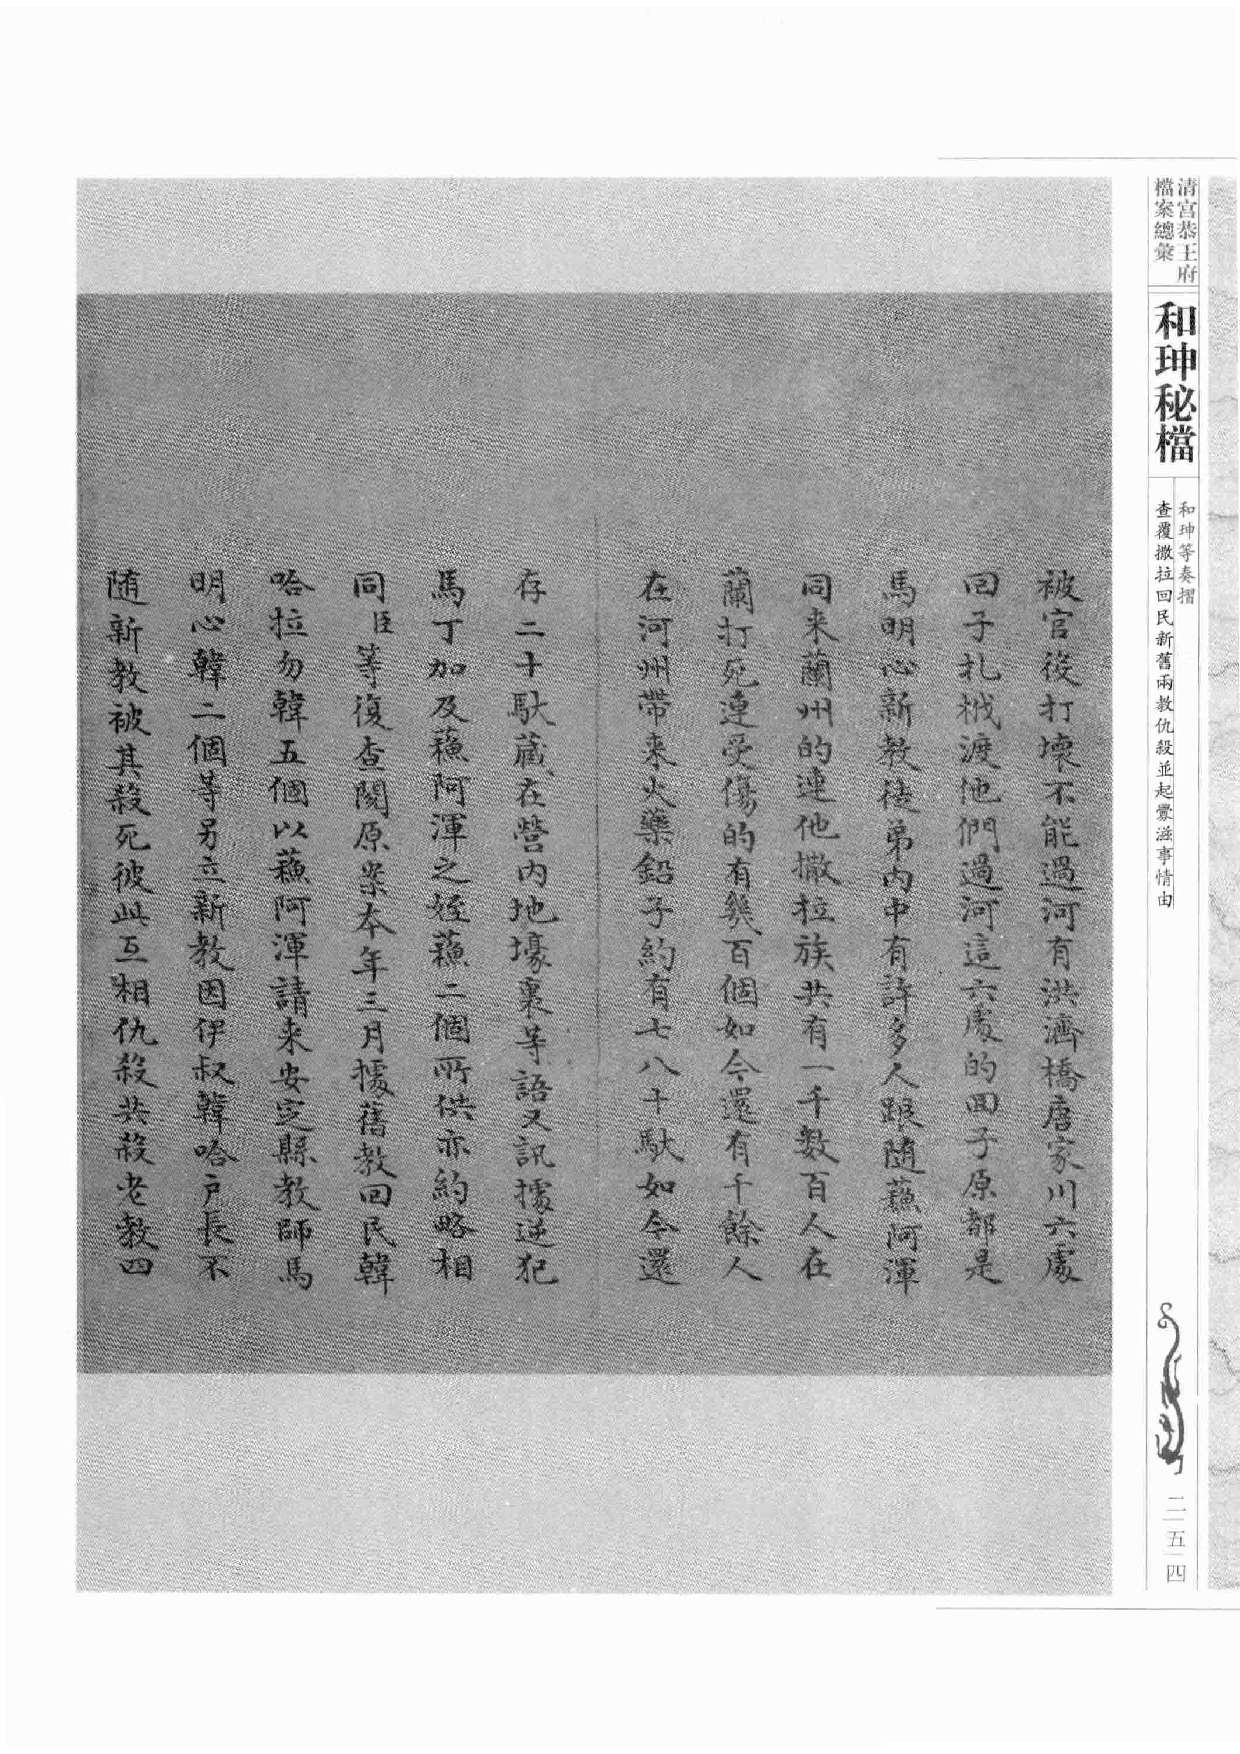 清宮恭王府
檔案總彙
和珅秘檔
和珅等奏摺
查覆撒拉回民新舊兩教仇殺並起釁滋事情由
二五四
被官後打壞不能過河有洪濟橋唐家川六處
回子扎栰渡他們過河這六處的回子原都是
馬明心新教徒弟內中有許多人跟隨蘓阿渾
同来蘭州的連他撒拉族共有一千數百人在
蘭打死連受傷的有幾百個如今還有千餘人
在河州帶来火藥鉛子約有七八十馱如今還
存二十馱藏在營内地壕裏等語又訊據逆犯
馬丁加及蘓阿渾之姪蘓二個所供亦約略相
同臣等復查閱原案本年三月據舊教回民韓
哈拉勿韓五個以蘓阿渾請来安定縣教師馬
明心韓二個等另立新教因伊叔韓哈户長不
随新教被其殺死彼此互相仇殺共殺老教四